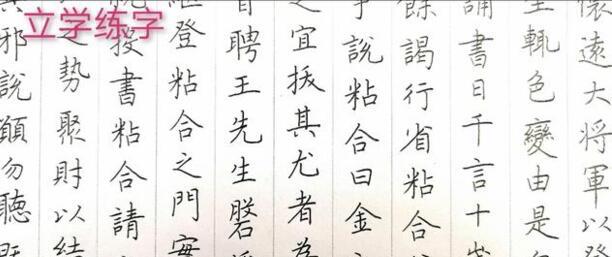 立学练字
懷遠大將軍以
輒色變由是
誦書日千言十歲
餘謁行省粘合
說粘合曰金
之宜拔其尤者為
聘王先生磐
登粘合之門
投書粘合請
之勢聚財以結
邪說願勿聽